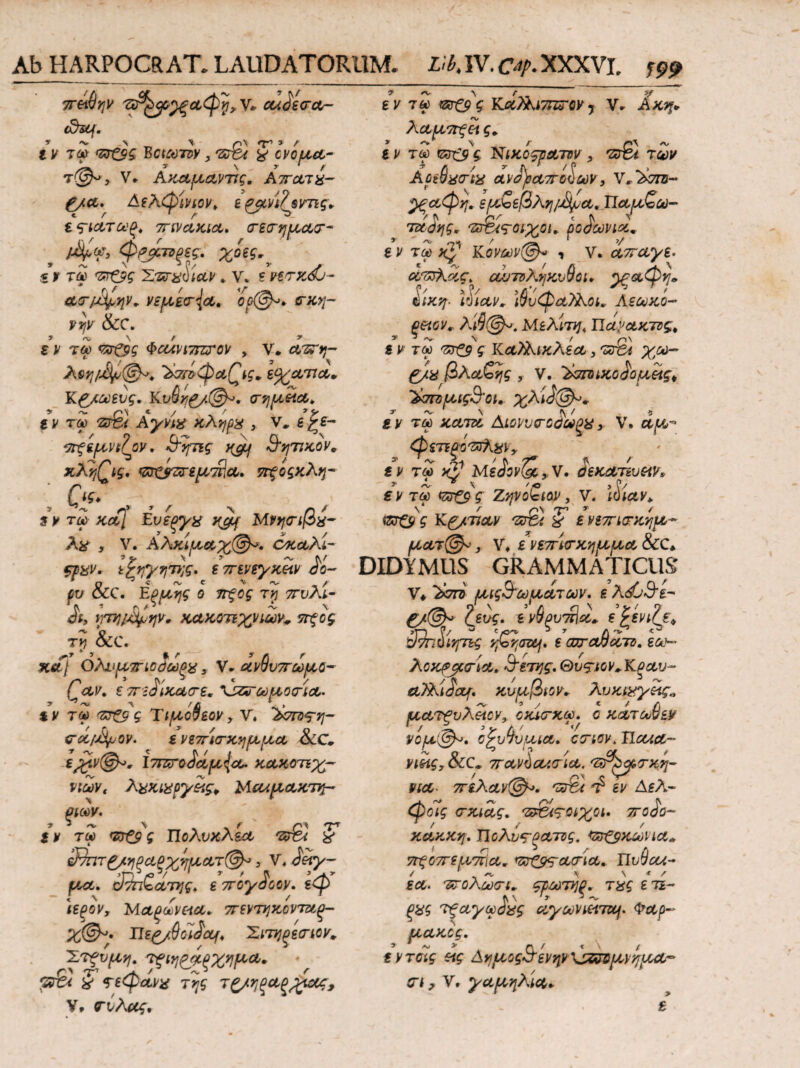 Ab HARPOCRAT. LAUDATORUM. Lib. IV. Cap. XXXVI. 599
πείθην διαγραφή, V. αἰδέσα-
σθαι.
ἐν τῷ πρὸς Βοιωτὸν, περὶ τοῦ ὀνόμα-
τος, V. Ἀκαμαντίς. Ἀπατού-
ρια. Δελφίνιον. ἐρανίζοντες.
ἑστιάτωρ. πινάκια. σεσημασ-
μένῳ, φράτορες. χόες.
ἐν τῷ πρὸς Σπουδίαν. V. ἐνεσκευ-
ασμένην. νεμέσεια. ὅρος. σκη-
νὴν &c.
ἐν τῷ πρὸς Φαίνιππον, V. ἀπη-
λοημένος. ἀποφάσις. ἐσχατιά.
Κριωεύς. Κυθήριος. σημεῖα.
ἐν τῷ περὶ Ἁγνίου κλήρου, V. ἐξε-
πρέμνιζον. θῆτες καὶ θητικόν.
κλῆσις. προσπερμεῖα. πρόςκλη-
σις.
ἐν τῷ κατ' Εὐέργου καὶ Μνησιβού-
λου, V. Ἀλκίμαχος. ἐκαλί-
στρουν. ἐξηγητής. ἐπενεγκεῖν δό-
ρυ &c. Ἑρμῆς ὁ πρὸς τῇ πυλί-
δι, ἡτημένην. κακοτεχνιῶν. πρὸς
τῇ &c.
κατ' Ὀλυμπιοδώρου, V. ἀνθυπωμο-
σαν. ἐπεδίκασε. ὑπωμοσία.
ἐν τῷ πρὸς Τιμόθεον, V. ἀποστη-
σάμενον. ἐνεπίσκημμα &c.
ἐχῖνος. Ἱπποδάμεια. κακοτεχ-
νιῶν, λυκιουργεῖς. Μαιμακτη-
ριών.
ἐν τῷ πρὸς Πολυκλέα περὶ τοῦ
ἐπιτριηραρχήματος, V. δεῖγ-
μα. ἐπιβάτης. ἐπόγδοον. ἐφ'
ἱερόν, Μαρώνεια. πεντηκόνταρ-
χος. Περιθοῖδαι. Σιτηρέσιον.
Στρύμη. τριηράρχημα.
περὶ τοῦ στεφάνου τῆς τριηραρχίας,
V. σύλας.
ἐν τῷ πρὸς Κάλλιππον, V. Ἀκη.
λαμπρεῖς.
ἐν τῷ πρὸς Νικόστρατον, περὶ τῶν
Ἀρεθουσίου ἀνδραπόδων, V. ἀπο-
γραφή. ἐμβεβλημένα. Παμβω-
τάδης. περίστοιχοι. ῥοδωνιά.
ἐν τῷ κατὰ Κόνωνος, V. ἀπαγε.
ἁπλᾶς. αὐτολήκυθοι. γραφή.
δίκη. ἰδίαν. ἰθύφαλλοι. Λεωκό-
ρειον. λίθος. Μελίτη. Πάνακτος.
ἐν τῷ πρὸς Καλλικλέα, περὶ χω-
ρίου βλάβης, V. ἀποικοδομεῖς.
ἀπομισθοῖ. χλίδος.
ἐν τῷ κατὰ Διονυσοδώρου, V. ἀμ-
φετερόπλουν,
ἐν τῷ κατὰ Μέδοντα, V. δεκατεύειν.
ἐν τῷ πρὸς Ζηνόβιον, V. ἰδίαν.
πρὸς Κριτίαν περὶ τοῦ ἐνεπισκήμ-
ματος, V. ἐνεπίσκημμα &c.
DIDYMUS GRAMMATICUS
V. ἀπὸ μισθωμάτων. ἐλευθέ-
ριος ζεύς. ἐνθρυπτα. ἐξένιζε.
ἐπιδίητες ἡβῆσαι. ἐσπαθᾶτο. ἑω-
λοκρασία. θέτης. Θύστιον. Κραυ-
αλλίδαι. κυμβίον. λυκιουγεῖς.
ματρυλεῖον, ὀκίσκῳ. ὁ κάτωθεν
νόμος. ὀξυθυμία. ὅσιον. Παια-
νιεῖς, &c. πανδαισία. παρασκή-
νια. πέλανος. περὶ τῆς ἐν Δελ-
φοῖς σκιᾶς. περίστοιχοι. ποδο-
κάκκη. Πολύστρατος. προκώνια.
προπεμπτα. προστασία. Πυθαι-
έα. πολῶσι. στρωτήρ. τοὺς ἑτέ-
ρους τραγῳδοὺς ἀγωνιεῖται. Φαρ-
μακός.
ἐν τοῖς εἰς Δημοσθένην ὑπομνήμα-
σι, V. γαμηλία.
ε